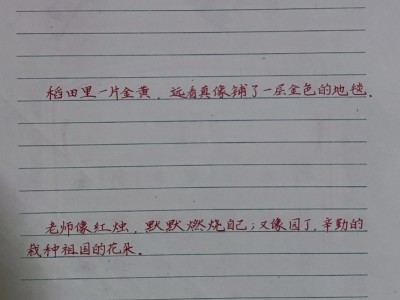 稻田里一片金黄，远看真像铺了一层金色的地毯。
老师像红烛，默默燃烧自己；又像园丁，辛勤的
栽种祖国的花朵。